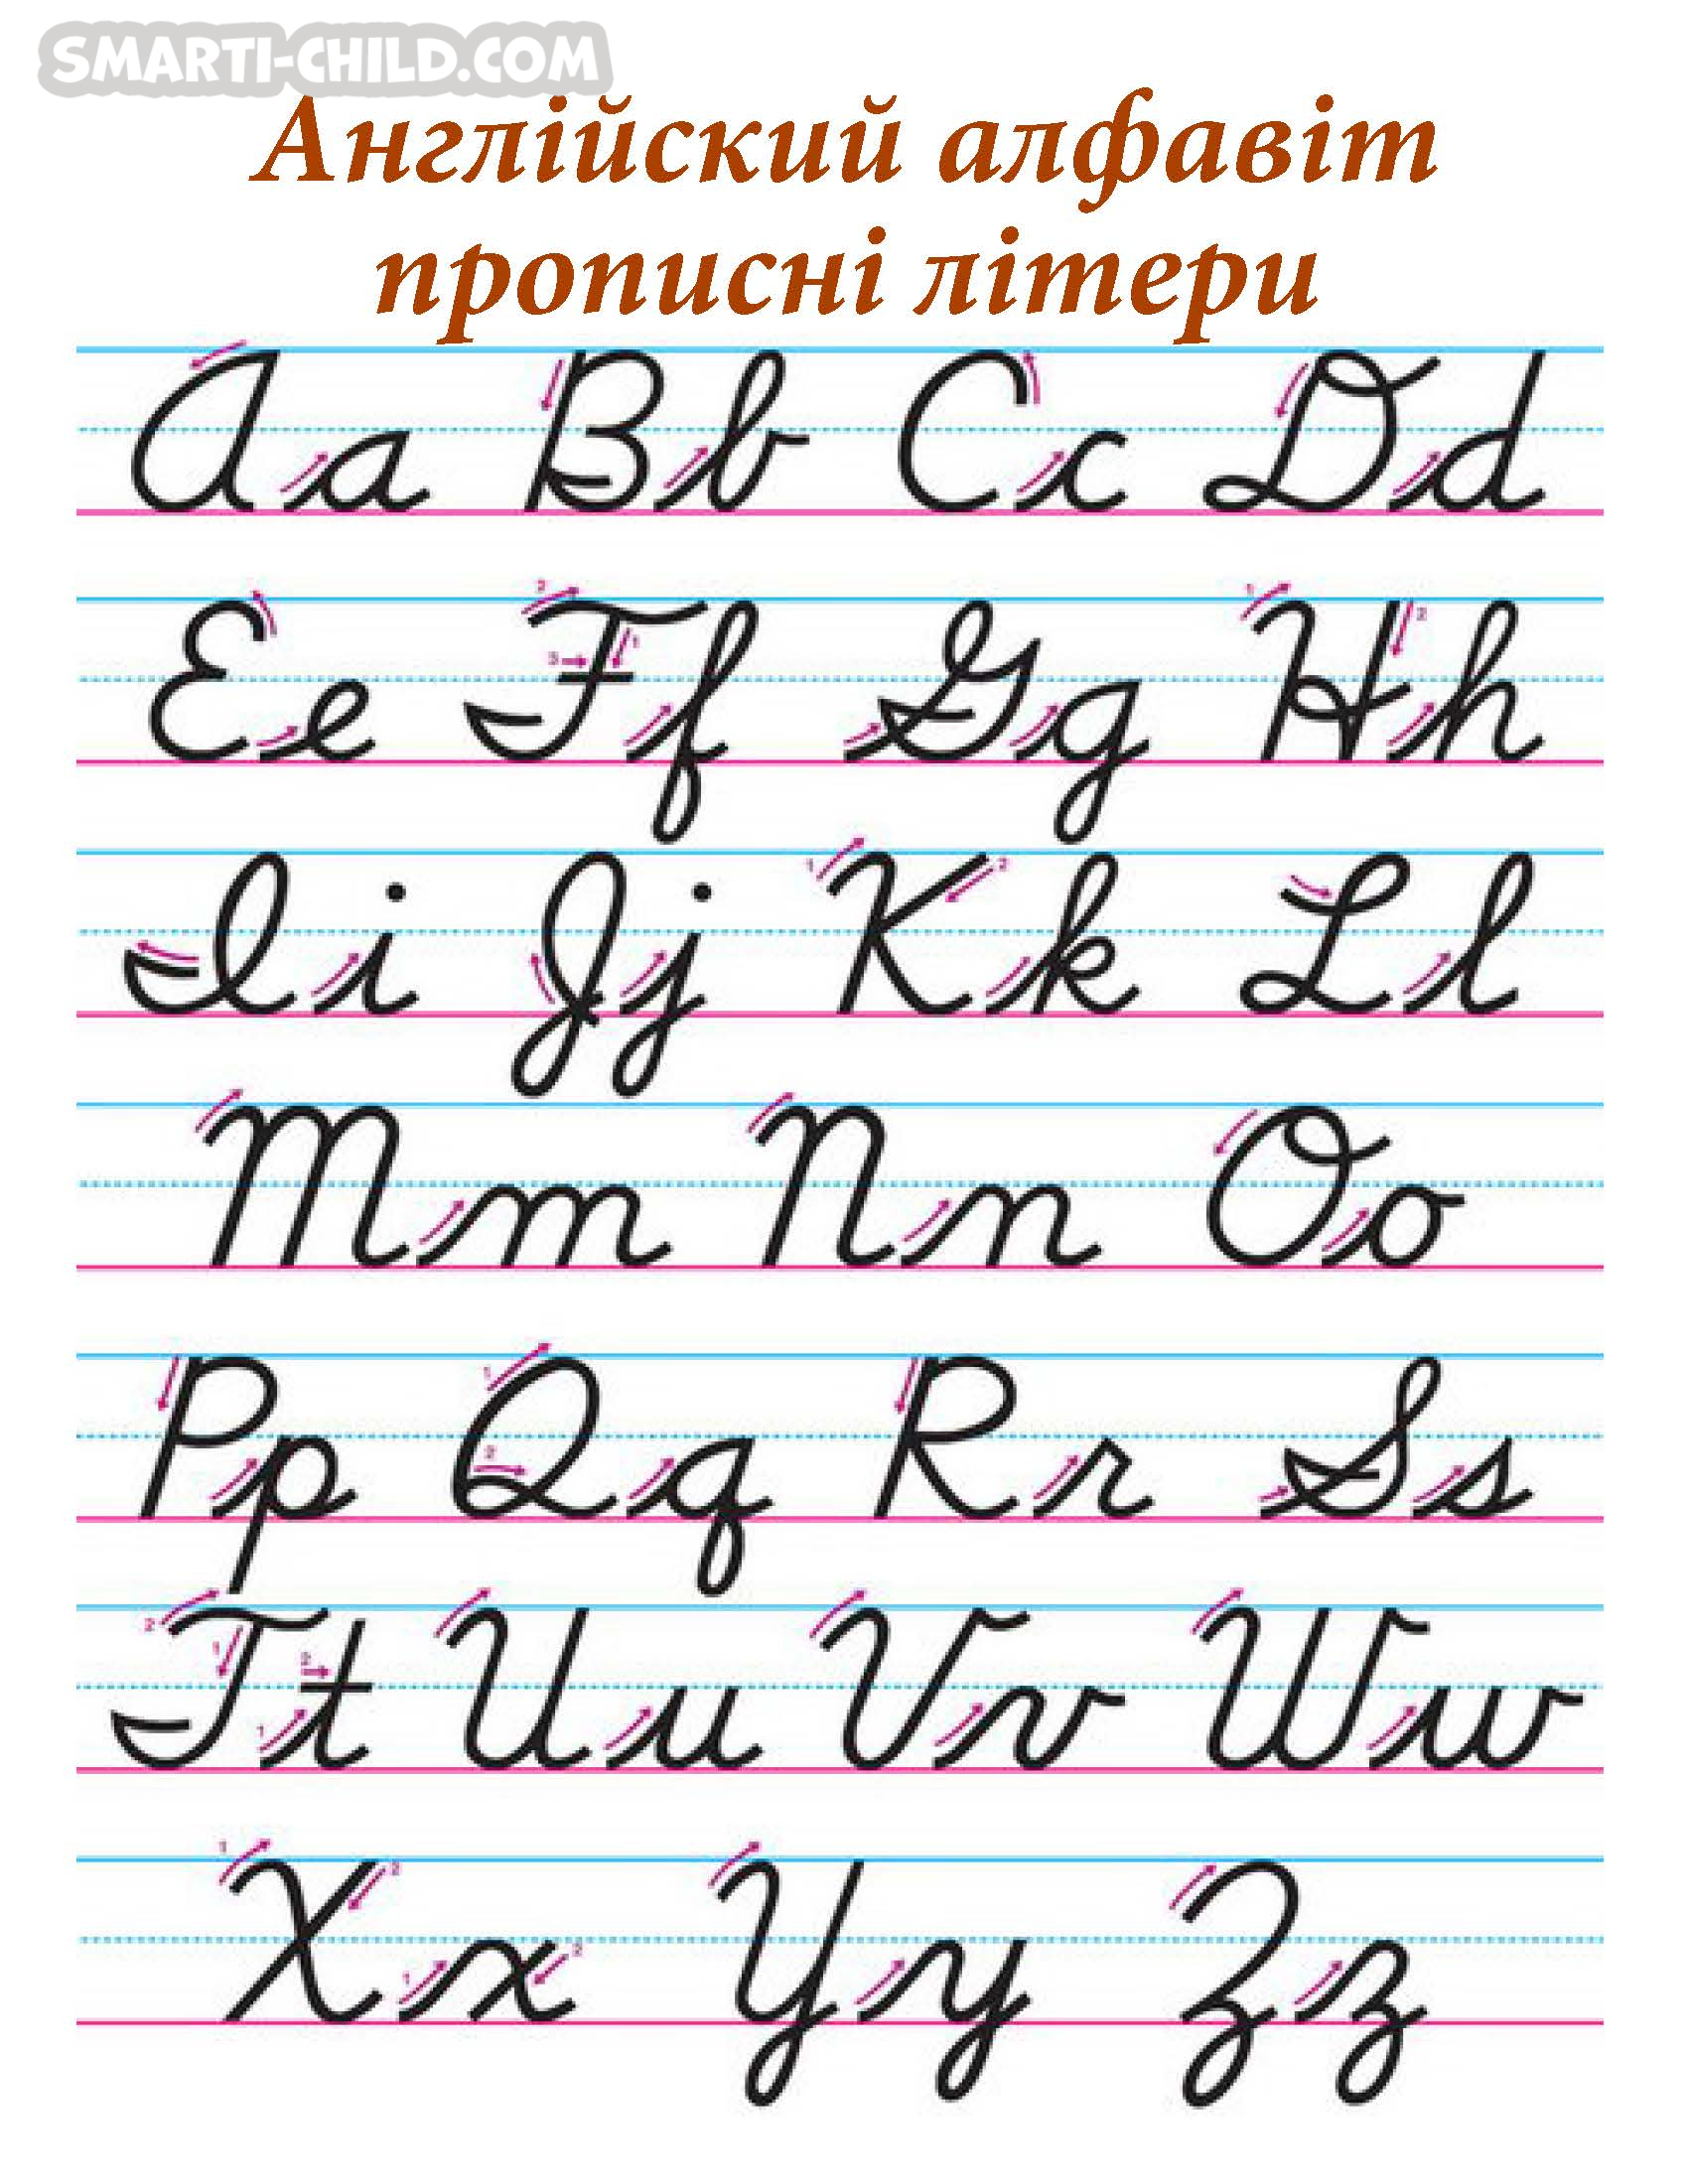 SMARTI-CHILD.COM
Англійский алфавіт
прописні літери
Aa Bb Cc Dd
Ee Ff Gg Hh
Ii Jj Kk Ll
Mm Nn Oo
Pp Qq Rr Ss
Tt Uu Vv Ww
Xx Yy Zz